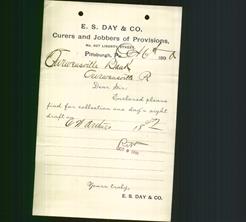 E. S. DAY & CO.
Curers and Jobbers of Provisions,
No. 627 LIBERTY STREET,
Pittsburgh, Oct 6th 1890
Curwensville Bank
Curwensville Pa
Dear Sir:
Enclosed please
find for collection one day's sight
draft on
Yours truly,
E. S. DAY & CO.